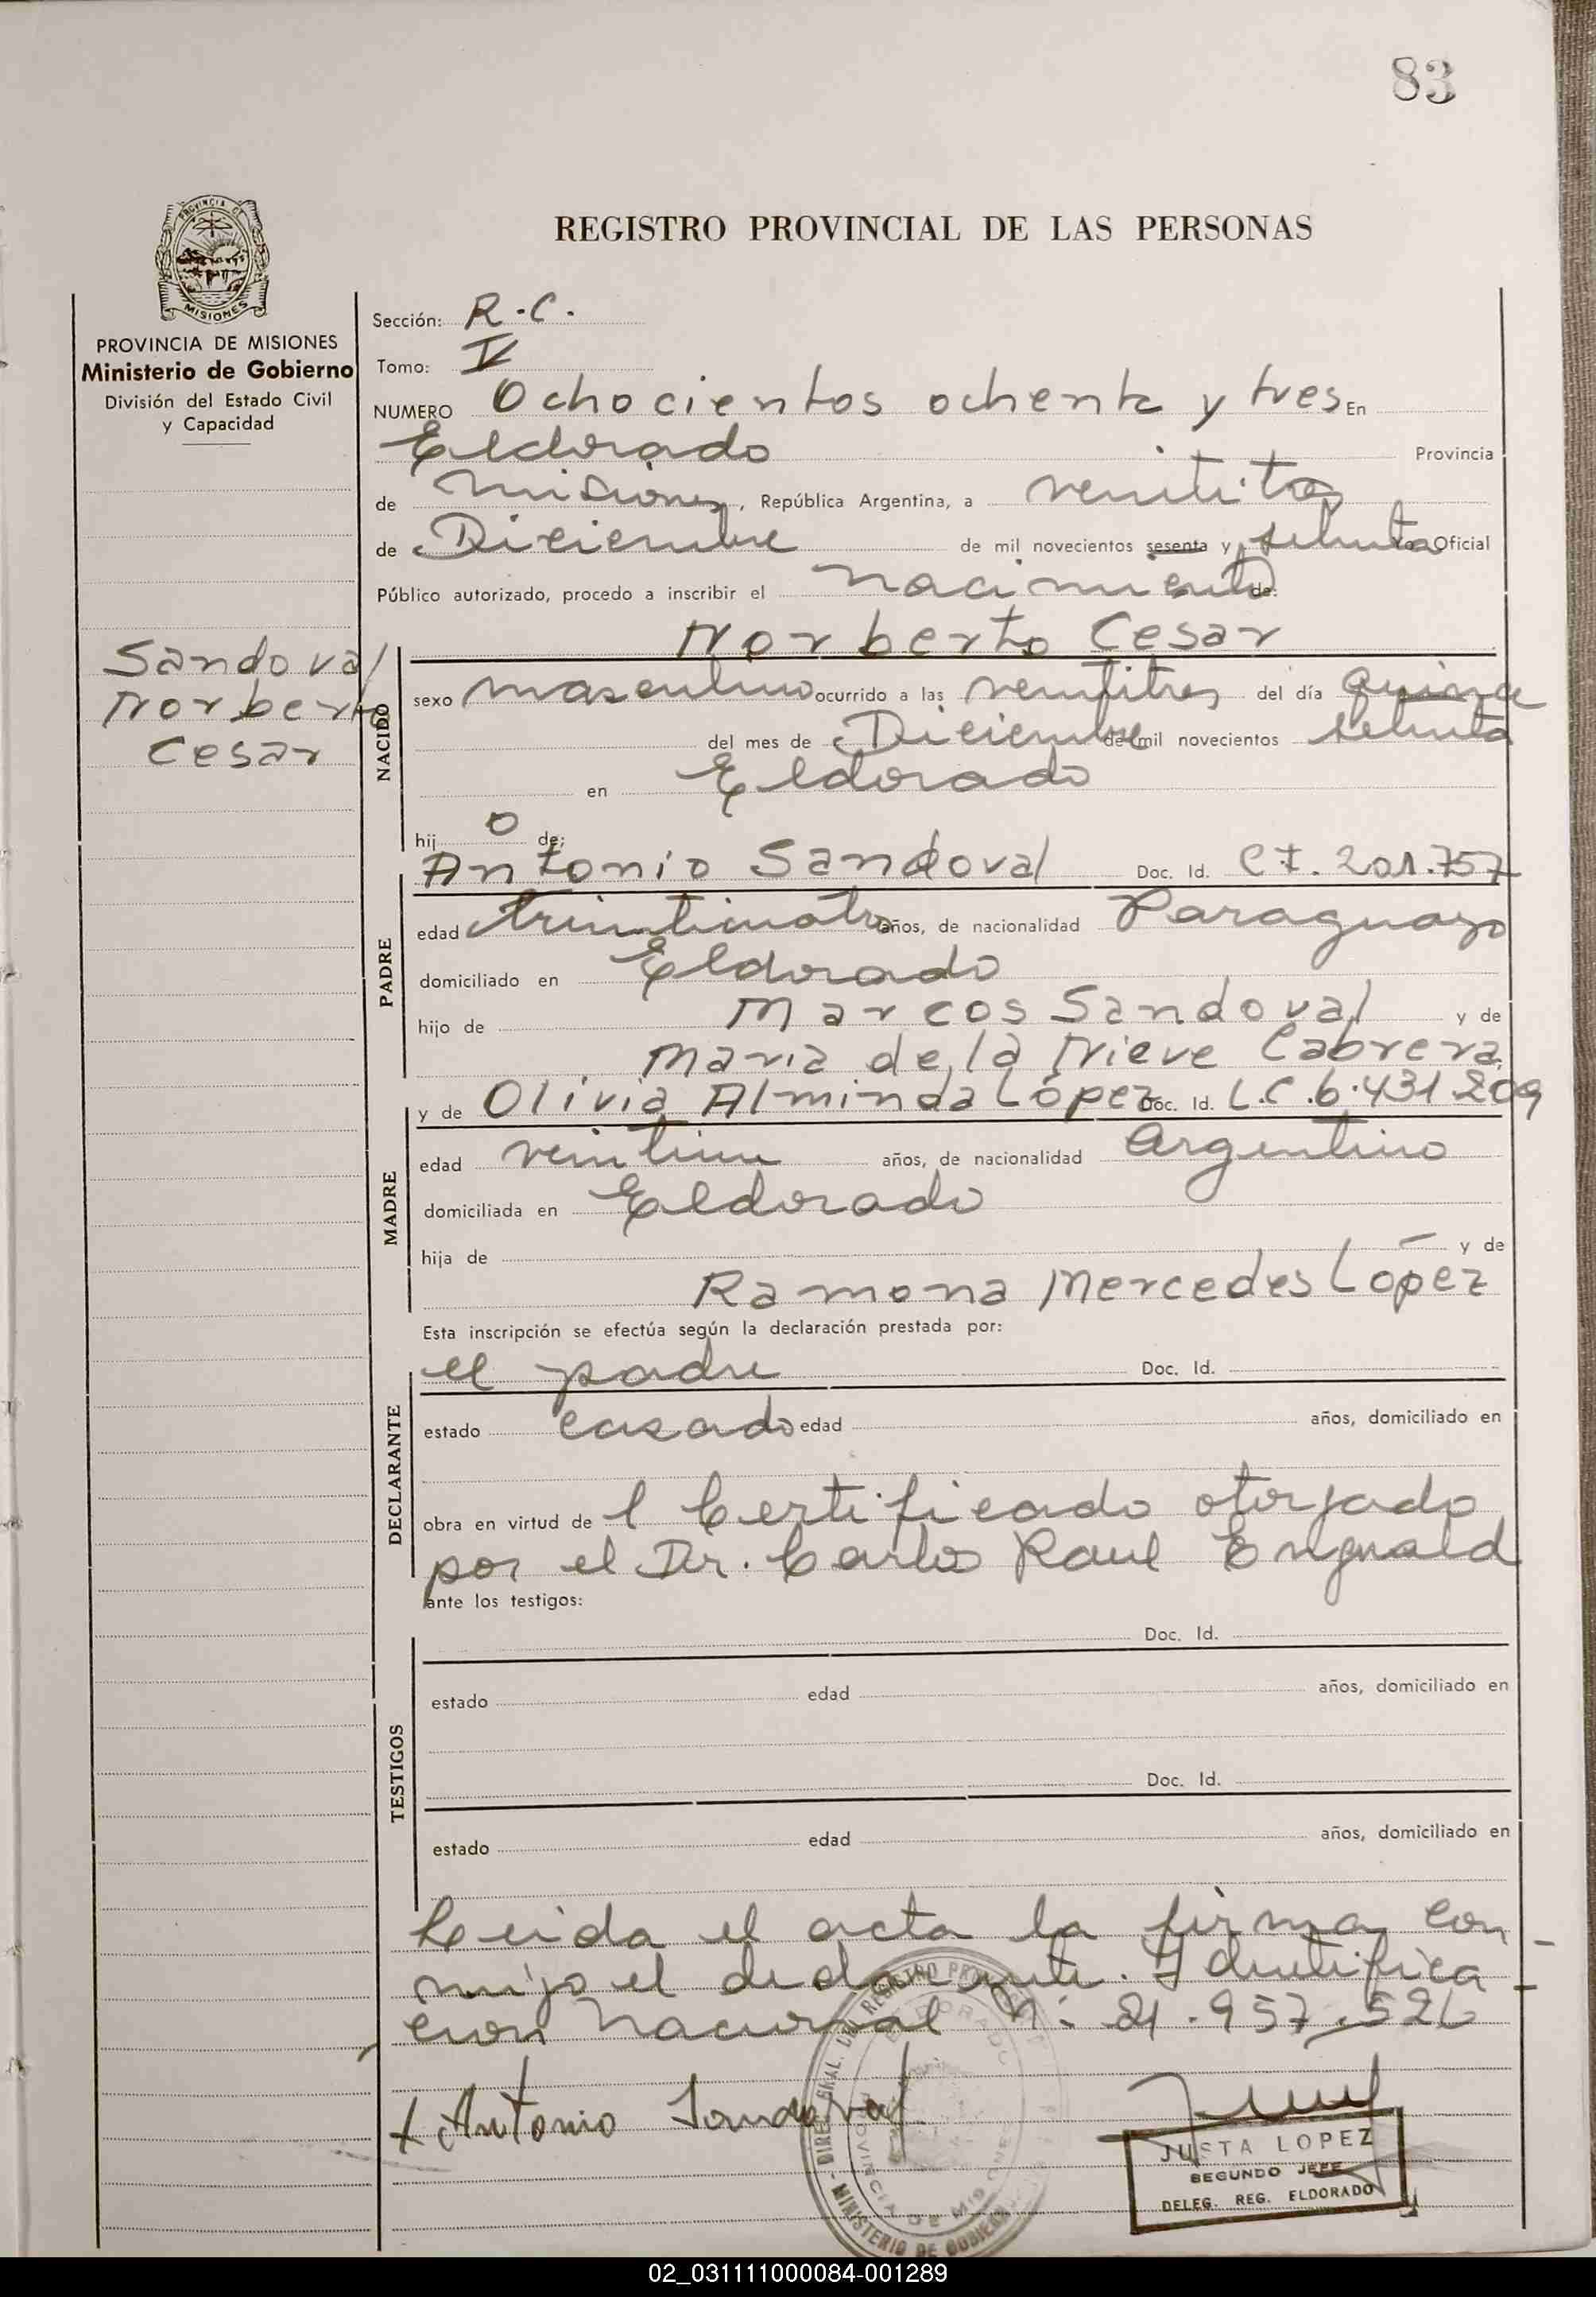 83
PROVINCIA DE
MISIONES
REGISTRO PROVINCIAL DE LAS PERSONAS
PROVINCIA DE MISIONES
Ministerio de Gobierno
División del Estado Civil
y Capacidad
Sandoval
Norberto
Cesar
Sección: R.C.
Tomo: V
NUMERO Ochocientos ochenta y tres En
Eldorado Provincia
de Misiones, República Argentina, a veintitres
de Diciembre de mil novecientos sesenta y setenta Yo, Oficial
Público autorizado, procedo a inscribir el nacimiento de:
NACIDO
Norberto Cesar
sexo masculino ocurrido a las veintitres del día quince
del mes de Diciembre de mil novecientos setenta
en Eldorado
hij o de:
PADRE
Antonio Sandoval Doc. Id. C.I. 201.757
edad treinticuatro años, de nacionalidad Paraguayo
domiciliado en Eldorado
hijo de Marcos Sandoval y de
Maria de la Nieve Cabrera
MADRE
y de Olivia Alminda López Doc. Id. L.C. 6.431.209
edad veintiun años, de nacionalidad Argentino
domiciliada en Eldorado
hija de — y de
Ramona Mercedes López
Esta inscripción se efectúa según la declaración prestada por:
DECLARANTE
el padre Doc. Id.
estado casado edad años, domiciliado en
obra en virtud de l Certificado otorgado
por el Dr. Carlos Raul Enguald
ante los testigos:
TESTIGOS
Doc. Id.
estado edad años, domiciliado en
Doc. Id.
estado edad años, domiciliado en
Leida el acta la firma con-
migo el declarante. Identifica-
cion Nacional N: 21.957.526
Antonio Sandoval
JUSTA LOPEZ
SEGUNDO JEFE
DELEG. REG. ELDORADO
02_031111000084-001289